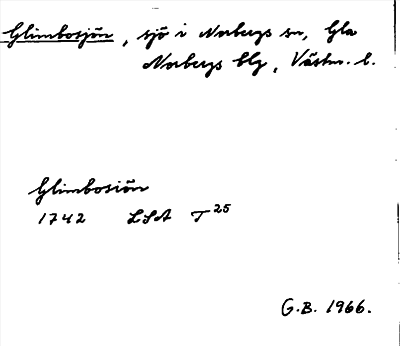 Glimbosjön, sjö i Norbergs sn, Gla
Norbergs blg, Västm. l.
Glimbosiön
1742 LSA T 25
G.B. 1966.